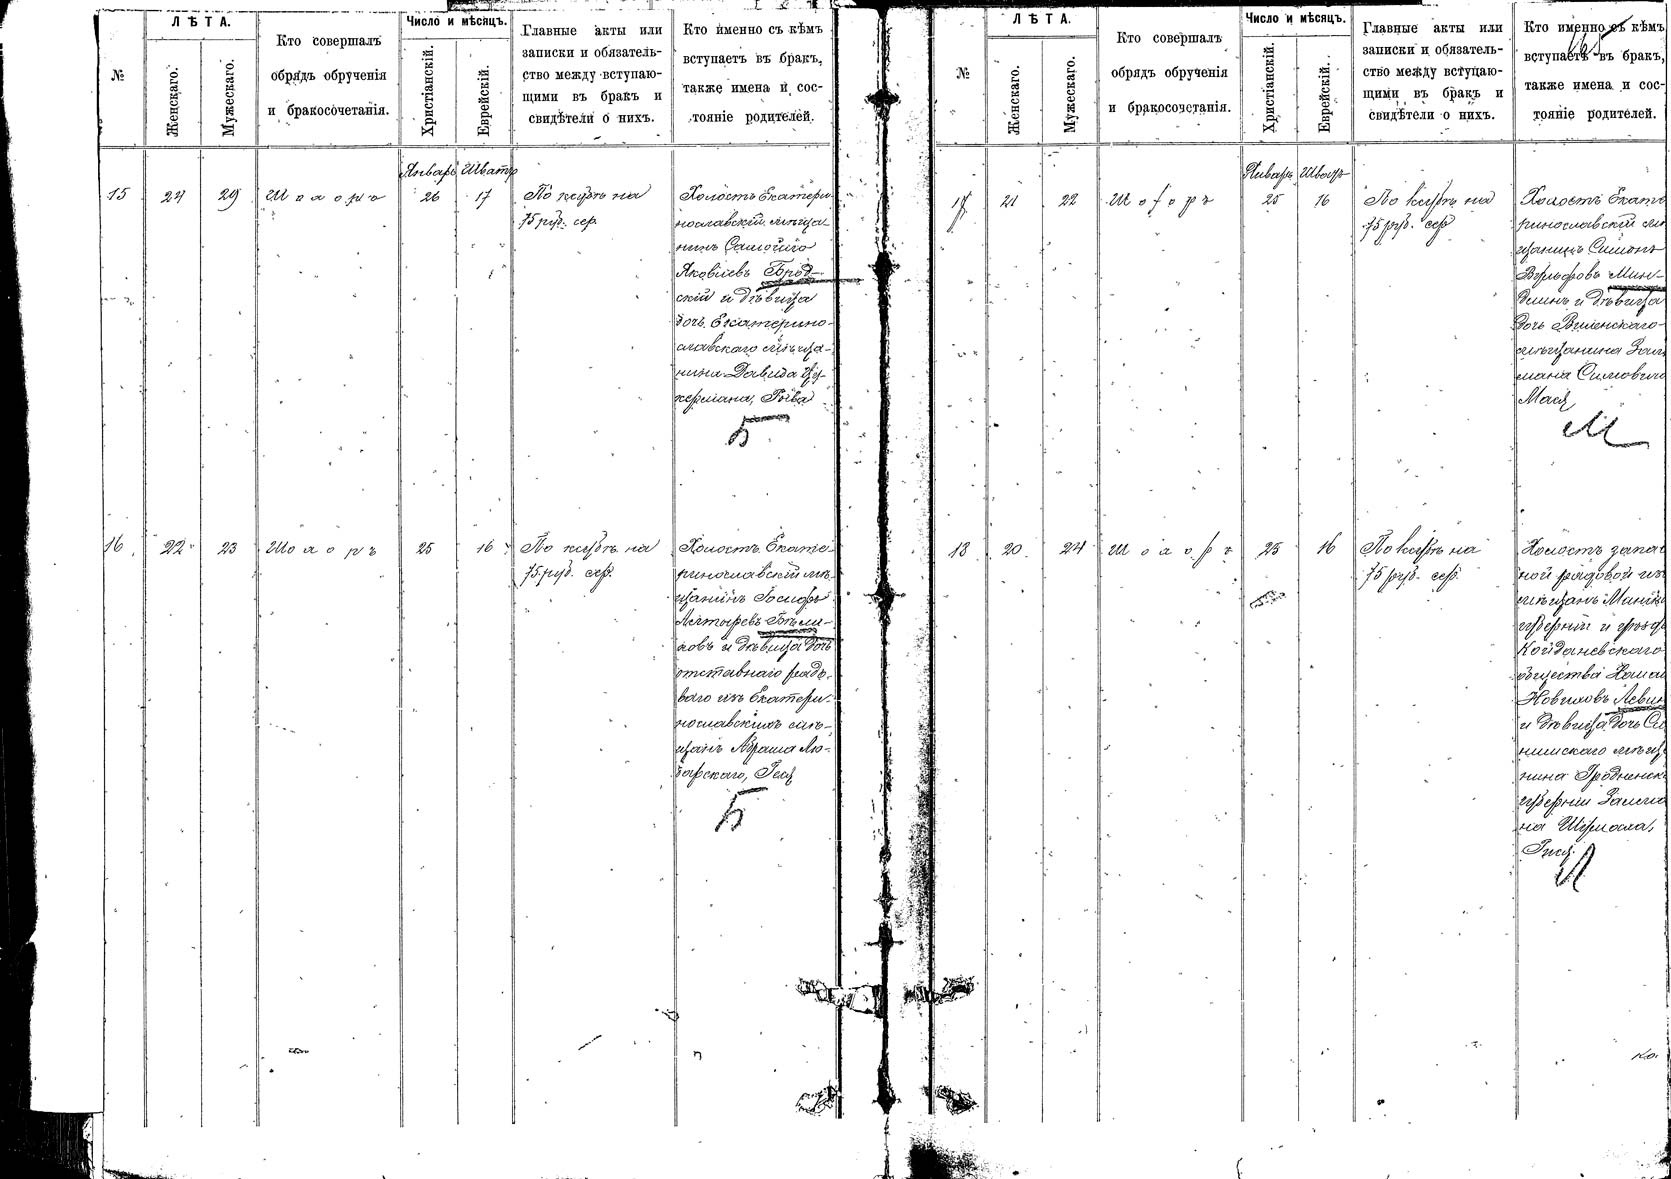 №
ЛѢТА.
Женскаго.
Мужескаго.
Кто совершалъ
обрядъ обрученія
и бракосочетанія.
Число и мѣсяцъ.
Христіанскій.
Еврейскій.
Главные акты или
записки и обязатель-
ство между вступаю-
щими въ бракъ и
свидѣтели о нихъ.
Кто именно съ кѣмъ
вступаетъ въ бракъ,
также имена и сос-
тояніе родителей.
Январь Шватъ
15 24 29 26 17 По ктубѣ на
75 руб. сер.
Холостъ Екатери
нославскій мѣща
нинъ
Яковлевъ Брод-
скій и дѣвица
дочь Екатерино-
славскаго мѣща-
нина Давида Цу-
кермана, Рива
Б
16 22 23 25 16 По ктубѣ на
75 руб. сер.
Холостъ Екате-
ринославскій мѣ-
щанинъ Іосифъ
и дѣвица дочь
отставнаго рядо-
ваго изъ Екатери-
нославскихъ мѣ-
щанъ Абрама Лю-
барскаго, Геся
Б
№
ЛѢТА.
Женскаго.
Мужескаго.
Кто совершалъ
обрядъ обрученія
и бракосочетанія.
Число и мѣсяцъ.
Христіанскій.
Еврейскій.
Главные акты или
записки и обязатель-
ство между вступаю-
щими въ бракъ и
свидѣтели о нихъ.
Кто именно съ кѣмъ
вступаетъ въ бракъ,
также имена и сос-
тояніе родителей.
Январь Шватъ
17 21 22 25 16 По ктубѣ на
75 руб. сер.
Холостъ Екате
ринославскій мѣ
щанинъ Симонъ
Вульфовъ Мин-
длинъ и дѣвица
дочь Виленскаго
мѣщанина Зал
мана
Мася
М
18 20 24 25 16 По ктубѣ на
75 руб. сер.
Холостъ запас
ной рядовой изъ
мѣщанъ Минск
губерніи и уѣзда
Койдановскаго
общества
Левин
и дѣвица дочь
мѣща
нина Гродненск
губерніи Залма
на
Л